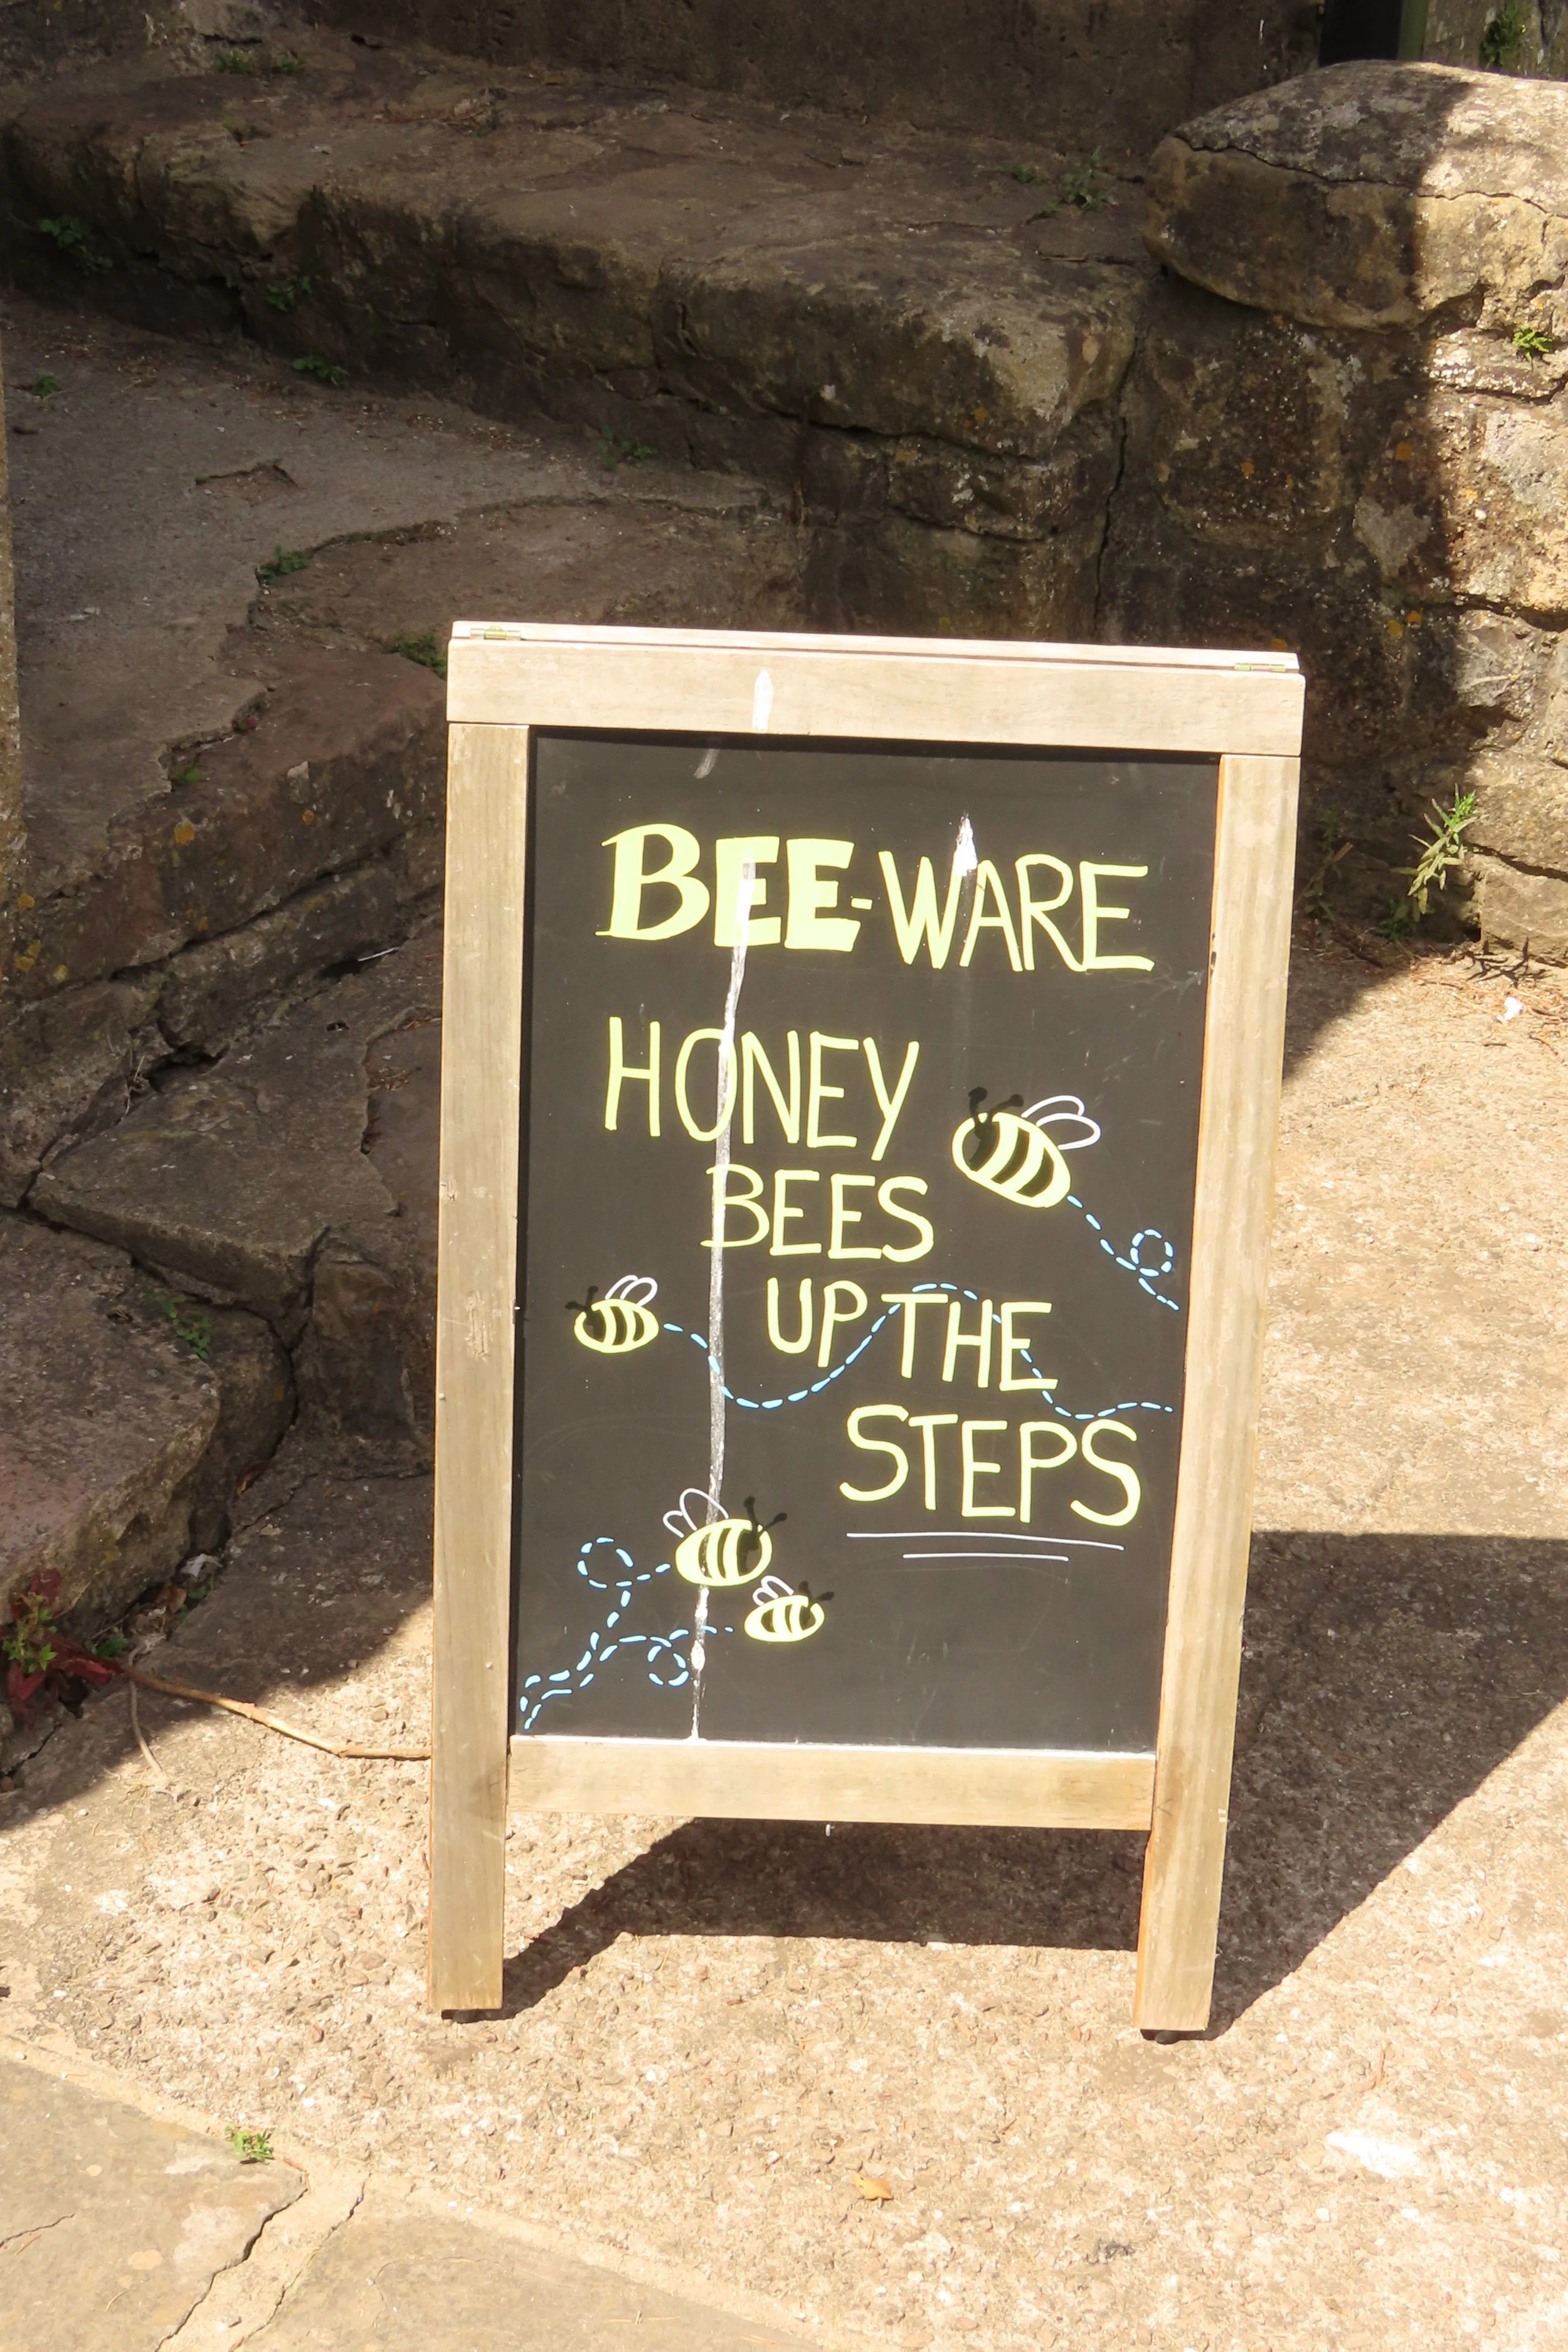 BEE-WARE
HONEY
BEES
UP THE
STEPS